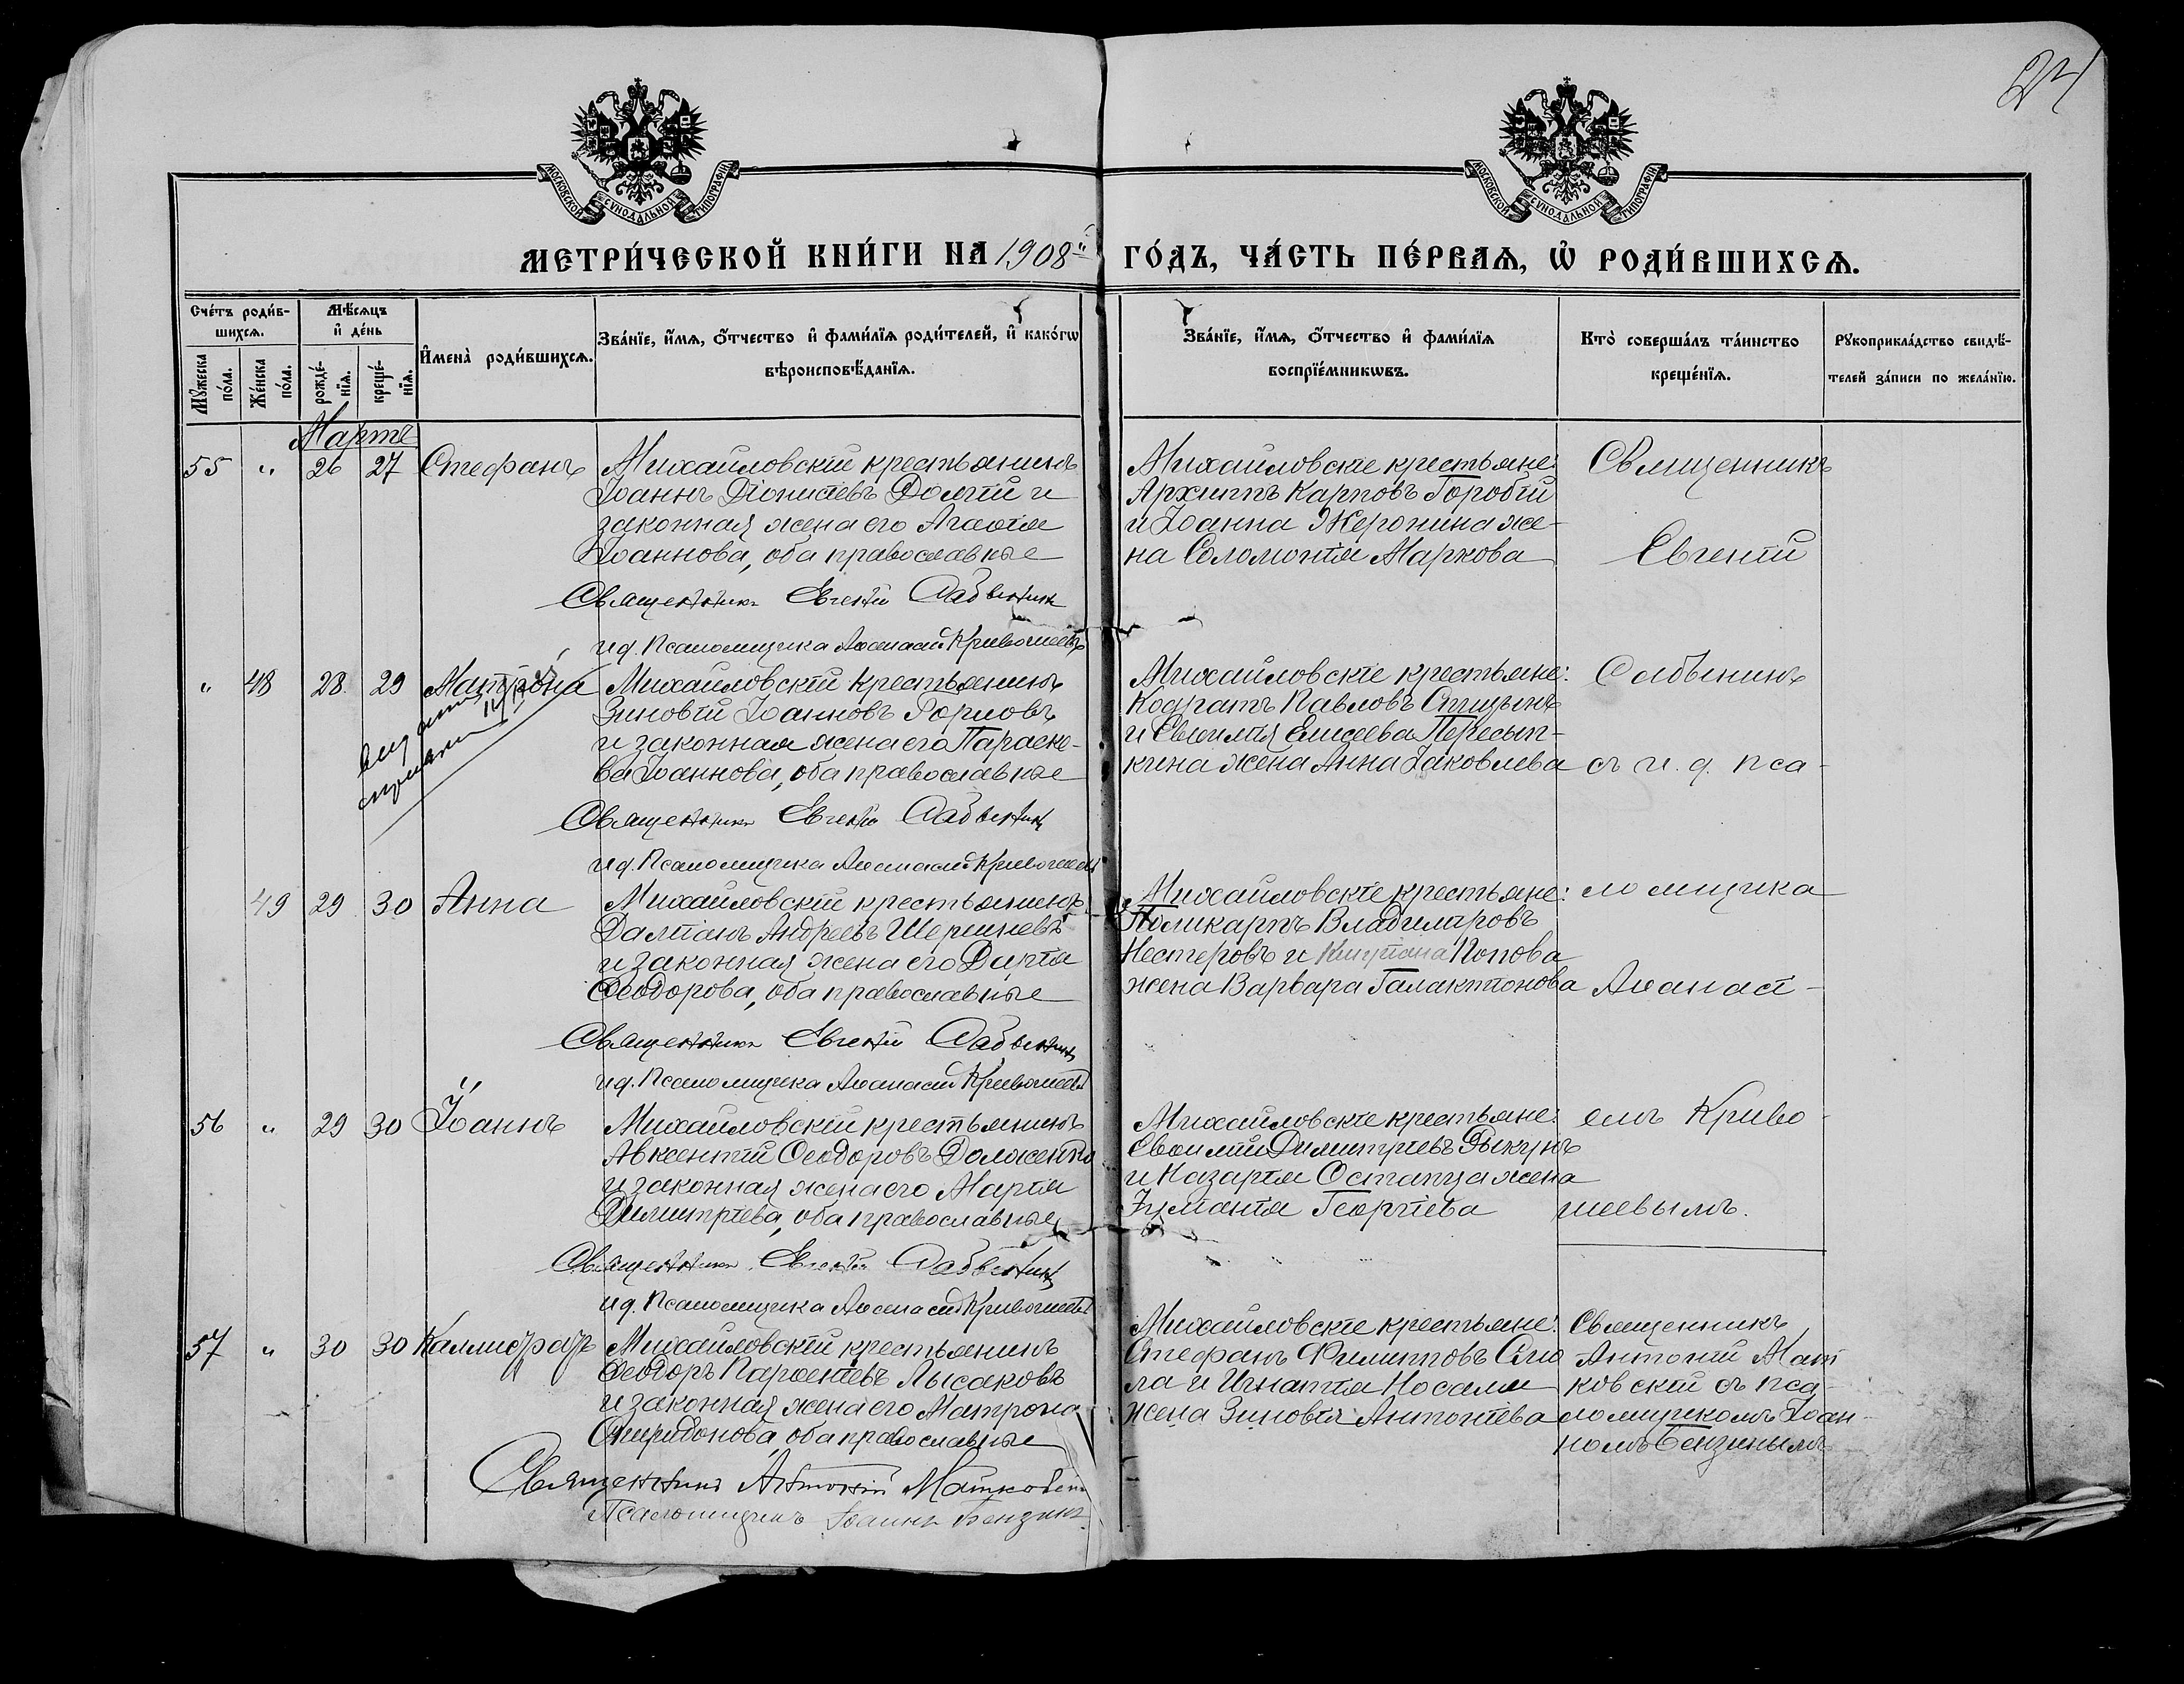 24
МОСКОВСКОЙ СѴНОДАЛЬНОЙ ТИПОГРАФІИ
МОСКОВСКОЙ СѴНОДАЛЬНОЙ ТИПОГРАФІИ
МЕТРИ́ЧЕСКОЙ КНИ́ГИ НА 1908й ГО́ДЪ, ЧА́СТЬ ПЕ́РВАѦ, Ѽ РОДИ́ВШИХСѦ.
Сче́тъ роди́в-
шихсѧ.
Мꙋ́жеска по́ла.
Же́нска по́ла.
Мѣ́сѧцъ
и҆ де́нь
рожде́-
нїѧ.
креще́-
нїѧ.
И҆мена̀ роди́вшихсѧ.
Зва́нїе, и҆́мѧ, ѻ҆́тчество и҆ фами́лїѧ роди́телей, и҆ како́гѡ
вѣроисповѣ́данїѧ.
Зва́нїе, и҆́мѧ, ѻ҆́тчество и҆ фами́лїѧ
воспрїе́мникѡвъ.
Кто̀ соверша́лъ та́инство
креще́нїѧ.
Рꙋкоприкла́дство свидѣ́-
телей за́писи по жела́нїю.
Мартъ
55 " 26 27 Стефанъ
Михайловскій крестьянинъ
Іоаннъ Діонисіевъ Долгій и
законная жена его Агафія
Іоаннова, оба православные
Священникъ Евгеній Сабынинъ
и д. Псаломщика Аѳанасій Кривошеевъ
Михайловскіе крестьяне:
Архиппъ Карповъ Горобій
и Іоанна Жеронина же-
на Соломонія Маркова
Священникъ
Евгеній
" 48 28 29 Матрона
Михайловскій крестьянинъ
Зиновій Іоанновъ Горловъ
и законная жена его Параске-
ва Іоаннова, оба православные
Священникъ Евгеній Сабынинъ
и д. Псаломщика Аѳанасій Кривошеевъ
Михайловскіе крестьяне:
Кодратъ Павловъ Спицынъ
и Евѳимія Елисеева Пересып-
кина жена Анна Іаковлева
Сабынинъ
съ и. д. пса-
49 29 30 Анна
Михайловскій крестьянинъ
Даміанъ Андреевъ Шершневъ
и законная жена его Дарія
Ѳеодорова, оба православные
Священникъ Евгеній Сабынинъ
и д. Псаломщика Аѳанасій Кривошеевъ
Михайловскіе крестьяне:
Поликарпъ Владиміровъ
Нестеровъ и Попова
жена Варвара Галактіонова
ломщика
Аѳанасі-
56 " 29 30 Іоаннъ
Михайловскій крестьянинъ
Авксентій Ѳеодоровъ Долженко
и законная жена его Марія
Димитріева, оба православные
Священникъ Евгеній Сабынинъ
и д. Псаломщика Аѳанасій Кривошеевъ
Михайловскіе крестьяне:
Евѳимій Димитріевъ
и Назарія Остапца жена
Іуліанія Георгіева
емъ Криво-
шеевымъ.
57 " 30 30 Каллистратъ
Михайловскій крестьянинъ
Ѳеодоръ Парѳеніевъ Лысаковъ
и законная жена его Матрона
Спиридонова, оба православные
Священникъ Антоній Матковскій
Псаломщикъ Іоаннъ Бензинъ.
Михайловскіе крестьяне:
Стефанъ Филипповъ
и Игнатія Носаля
жена Зиновія Антоніева
Священникъ
Антоній Мат-
ковскій съ пса-
ломщикомъ Іоан-
номъ Бензинымъ